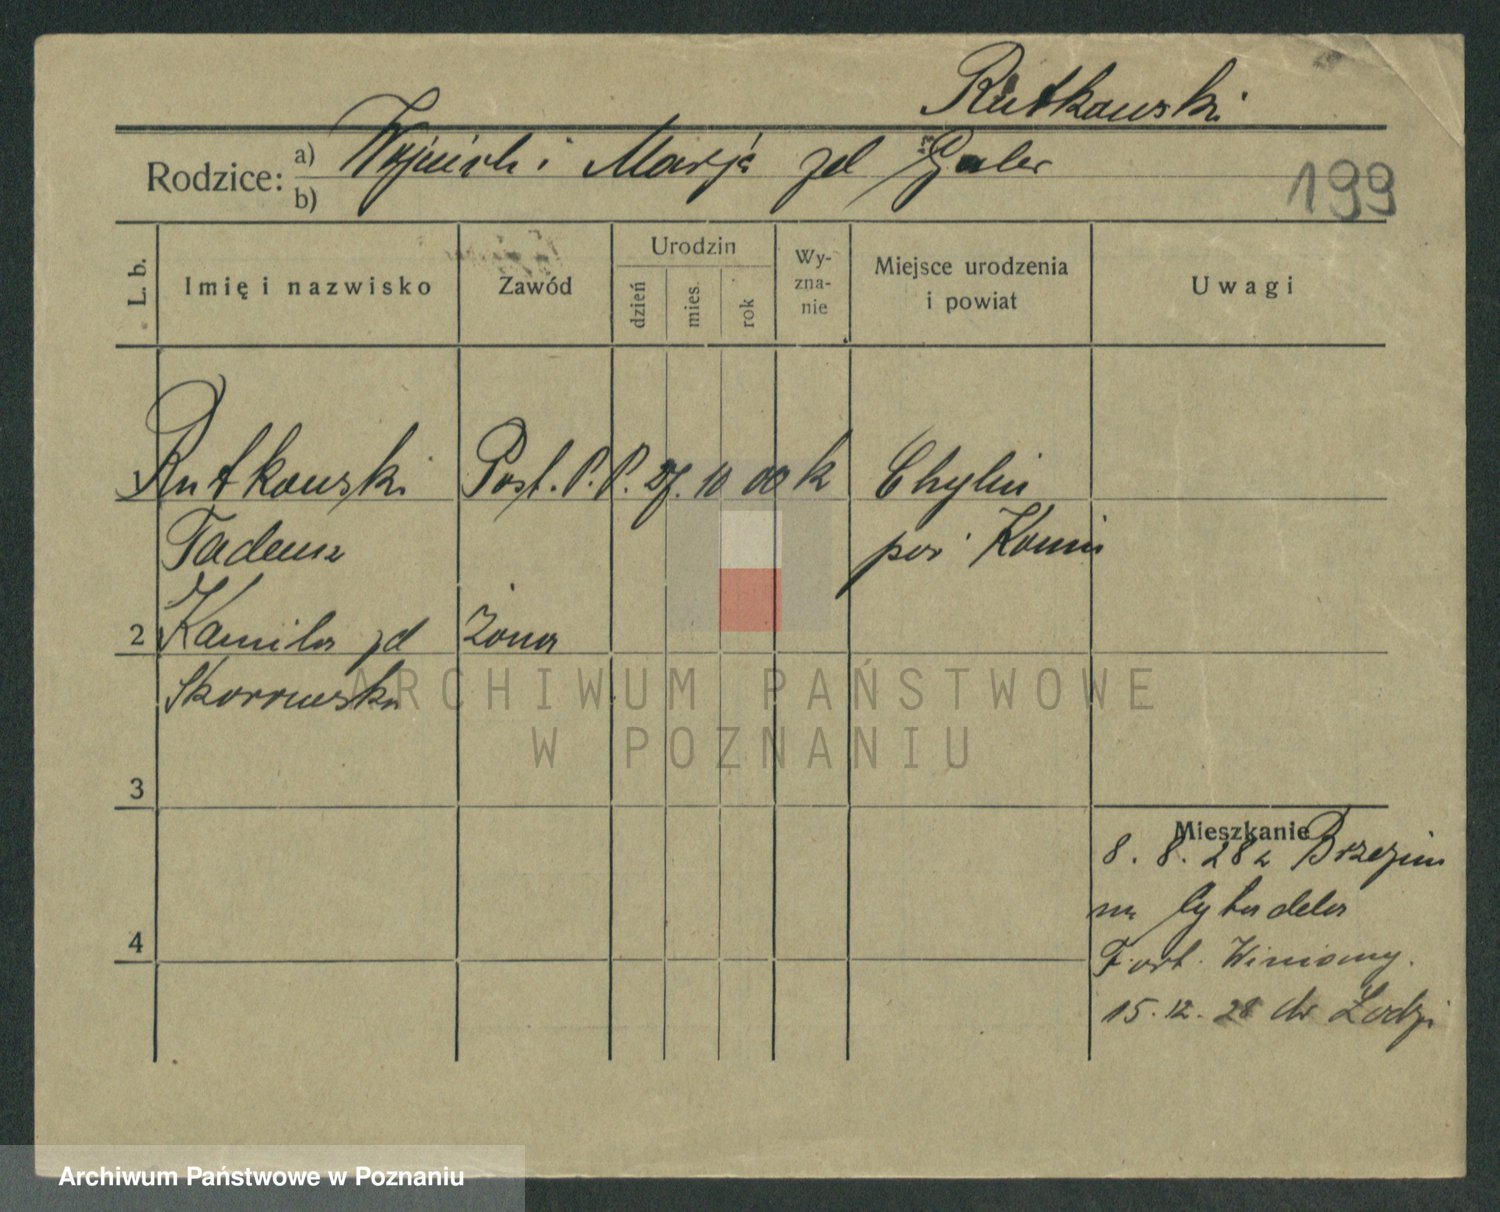 Rutkowski
Rodzice: a) Wojciech i Marja zd
b)
199
L. b.
Imię i nazwisko
Zawód
Urodzin
dzień
mies.
rok
Wy-
zna-
nie
Miejsce urodzenia
i powiat
Uwagi
1 Rutkowski Post. P. P. 27. 10 00 k Chylin
Tadeusz pow. Konin
2 Kamila zd Żona
3
Mieszkanie
8. 8. 28 z Brzezin
na Cytadela
4
Fort. Winiary.
15. 12. 28 do Łodzi
ARCHIWUM PAŃSTWOWE
W POZNANIU
Archiwum Państwowe w Poznaniu